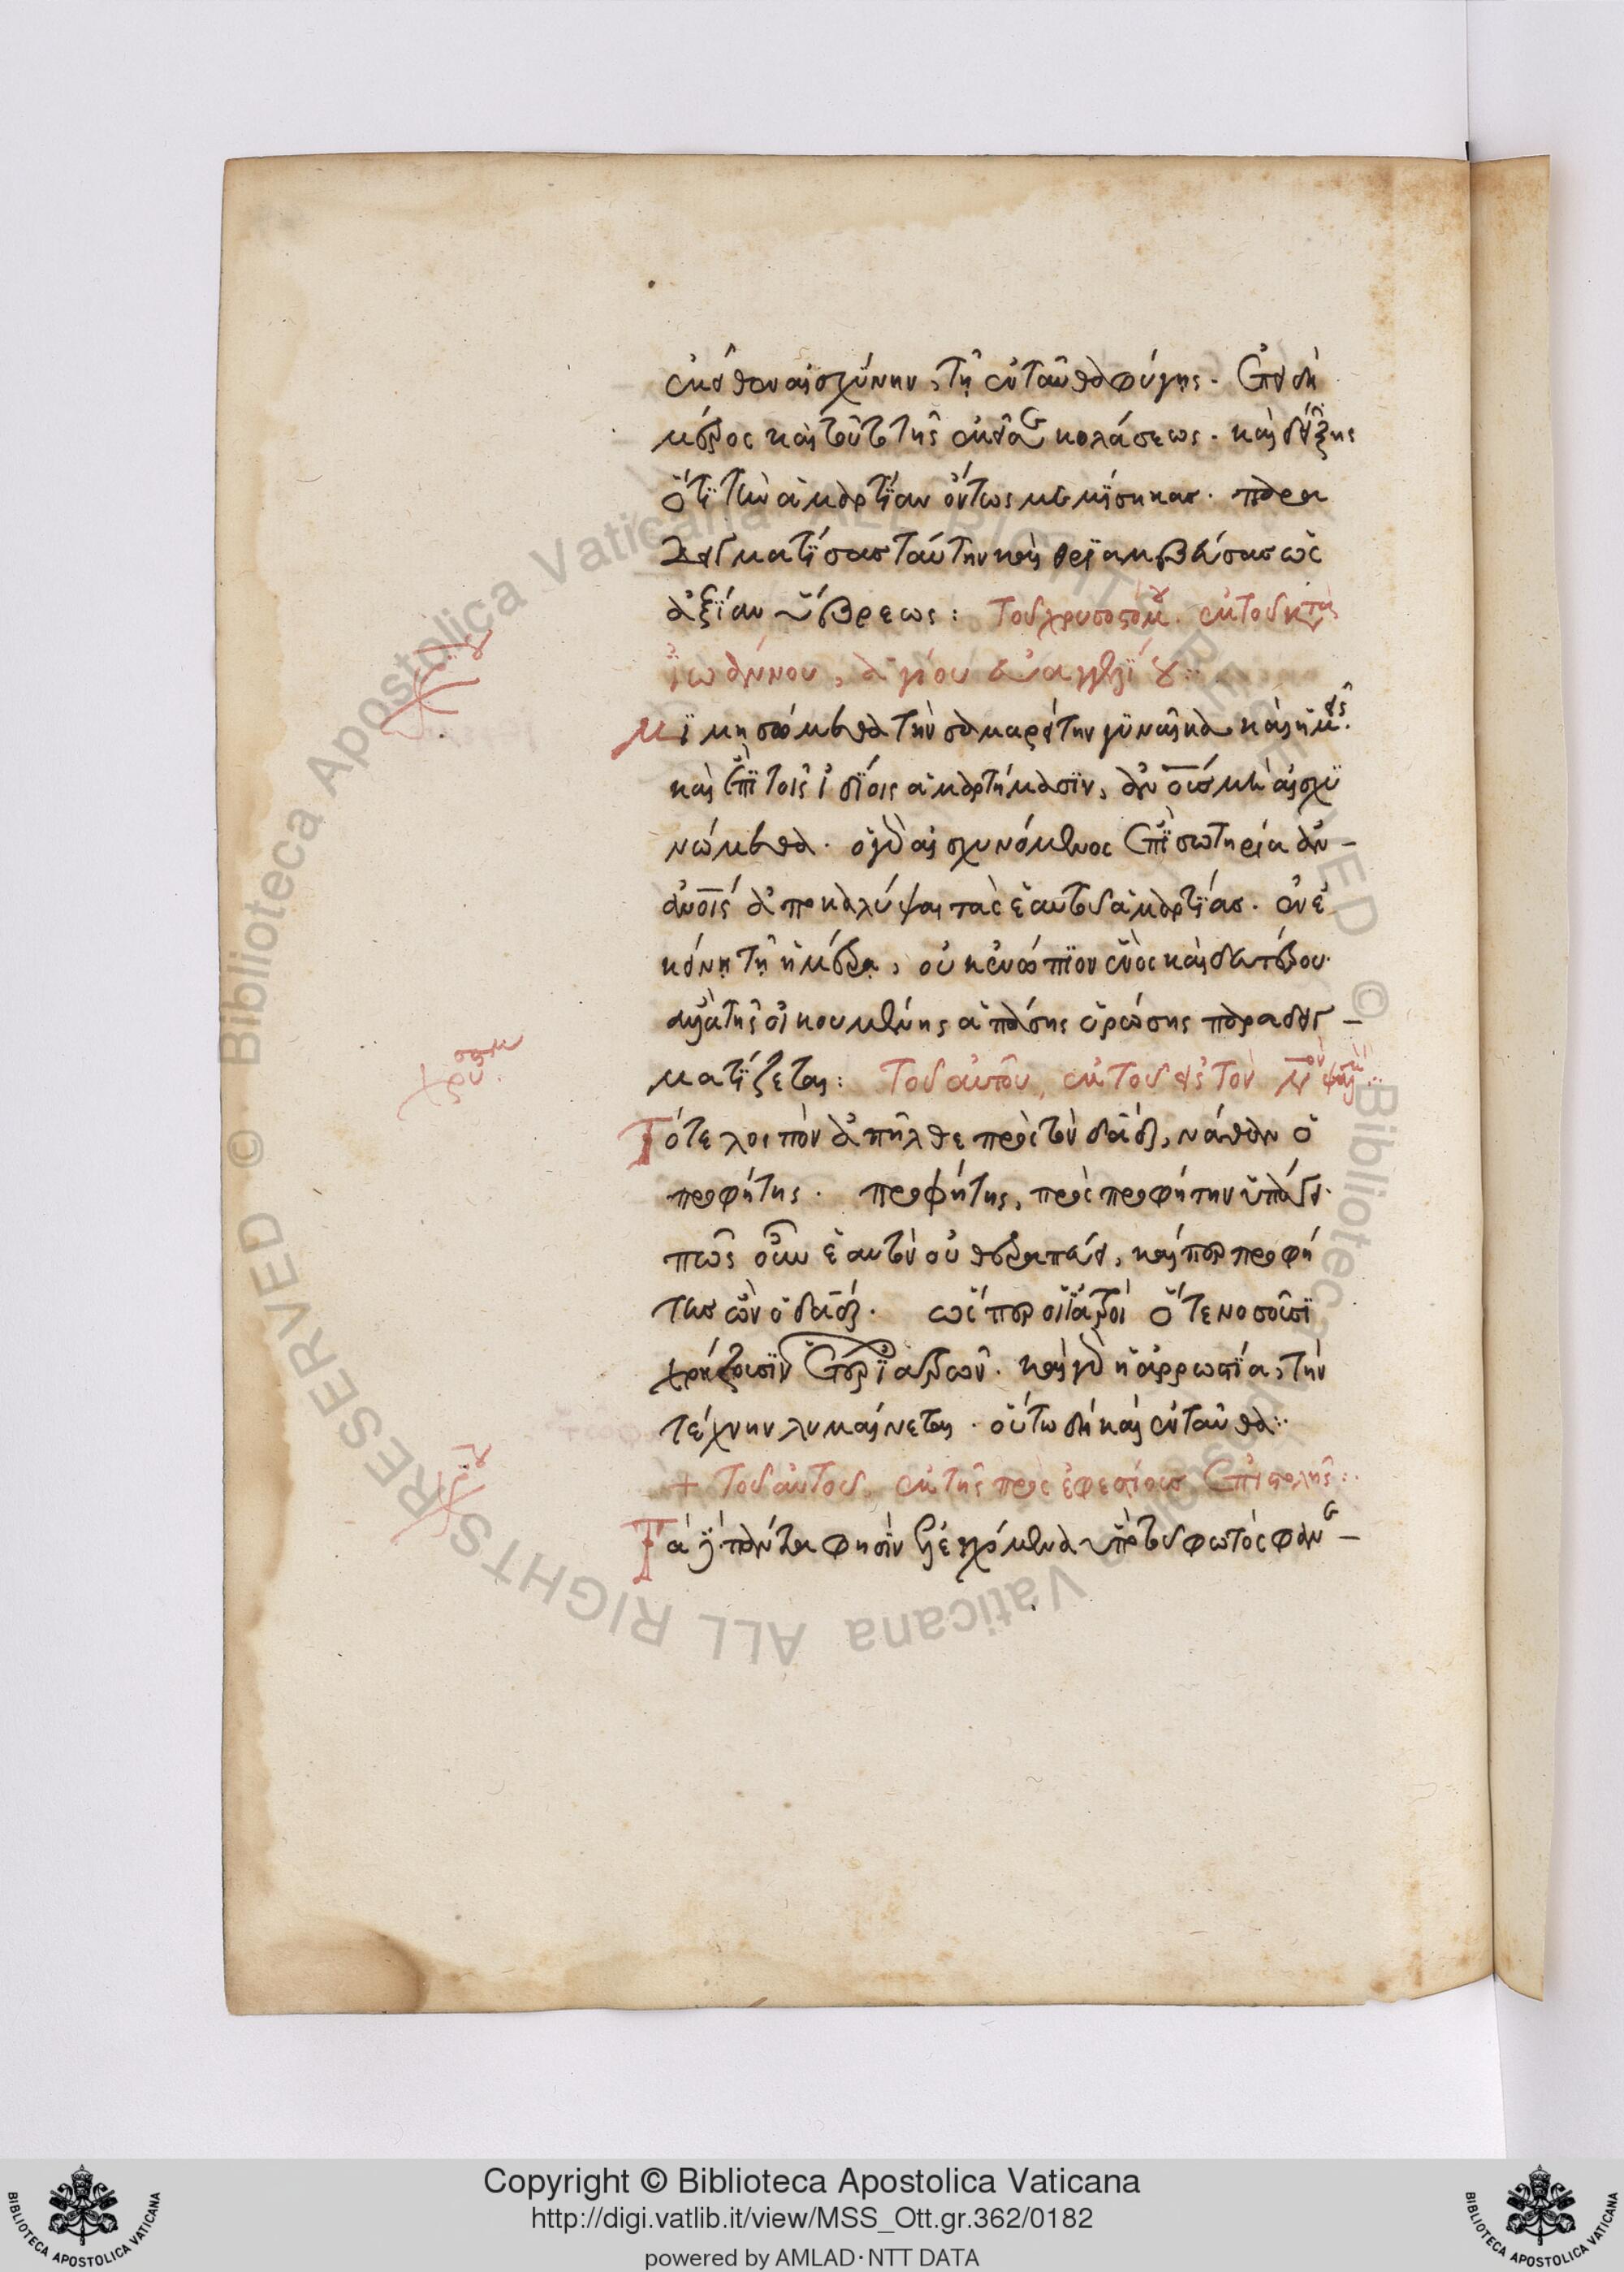 ἐκεῖθεν αἰσχύνην, τῇ ἐνταῦθα φύγῃς. ἐπειδὴ
μέρος καὶ τοῦτο τῆς ἐκεῖσε κολάσεως. καὶ δείξῃς
ὅτι τὴν ἁμαρτίαν ὄντως μεμίσηκας. παρα
δειγματίσας ταύτην καὶ θριαμβεύσας ὡς
ἀξίαν ὕβρεως: τοῦ χρυσοστόμου. ἐκ τοῦ κατὰ
ἰωάννου, ἁγίου εὐαγγελίου:
Μιμησώμεθα τὴν σαμαρεῖτην γυναῖκα καὶ ἡμεῖς.
καὶ ἐπὶ τοῖς ἰδίοις ἁμαρτήμασιν, ἀνους μὴ αἰσχυ
νώμεθα. ὁ γὰρ αἰσχυνόμενος ἐπὶ σωτηρία ἀν–
ανοις ἀποκαλύψαι τὰς ἑαυτοῦ ἁμαρτίας. ἐν ἐ
κείνῃ τῇ ἡμέρᾳ, οὐκ ἐνώπιον ἑνὸς καὶ δευτέρου.
ἀλλὰ τῆς οἰκουμένης ἁπάσης ὁρώσης παραδειγ–
ματίζεται: τοῦ αὐτοῦ, ἐκ τοῦ εἰς τὸν ν ψαλμόν:
Τότε λοιπὸν ἀπῆλθε πρὸς τὸν δαδ, νάθαν ὁ
προφήτης. προφήτης, πρὸς προφήτην ὑπάγει.
πῶς οὖν ἑαυτὸν οὐ θεραπεύει, καίπερ προφή
της ὢν ὁ δαδ. ὥσπερ οἱ ἰατροὶ ὅτε νοσοῦσι
χρήζουσιν ἑτέρων ἰατρῶν. καὶ γὰρ ἡ ἀρρωστία, τὴν
τέχνην λυμαίνεται. οὕτω δὴ καὶ ἐνταῦθα:
+ τοῦ αὐτοῦ, ἐκ τῆς πρὸς ἐφεσίους ἐπιστολῆς:
Τὰ δὲ πάντα φησὶν ἐλεγχόμενα ὑπὸ τοῦ φωτὸς φαν–
Copyright © Biblioteca Apostolica Vaticana
http://digi.vatlib.it/view/MSS_Ott.gr.362/0182
powered by AMLAD·NTT DATA